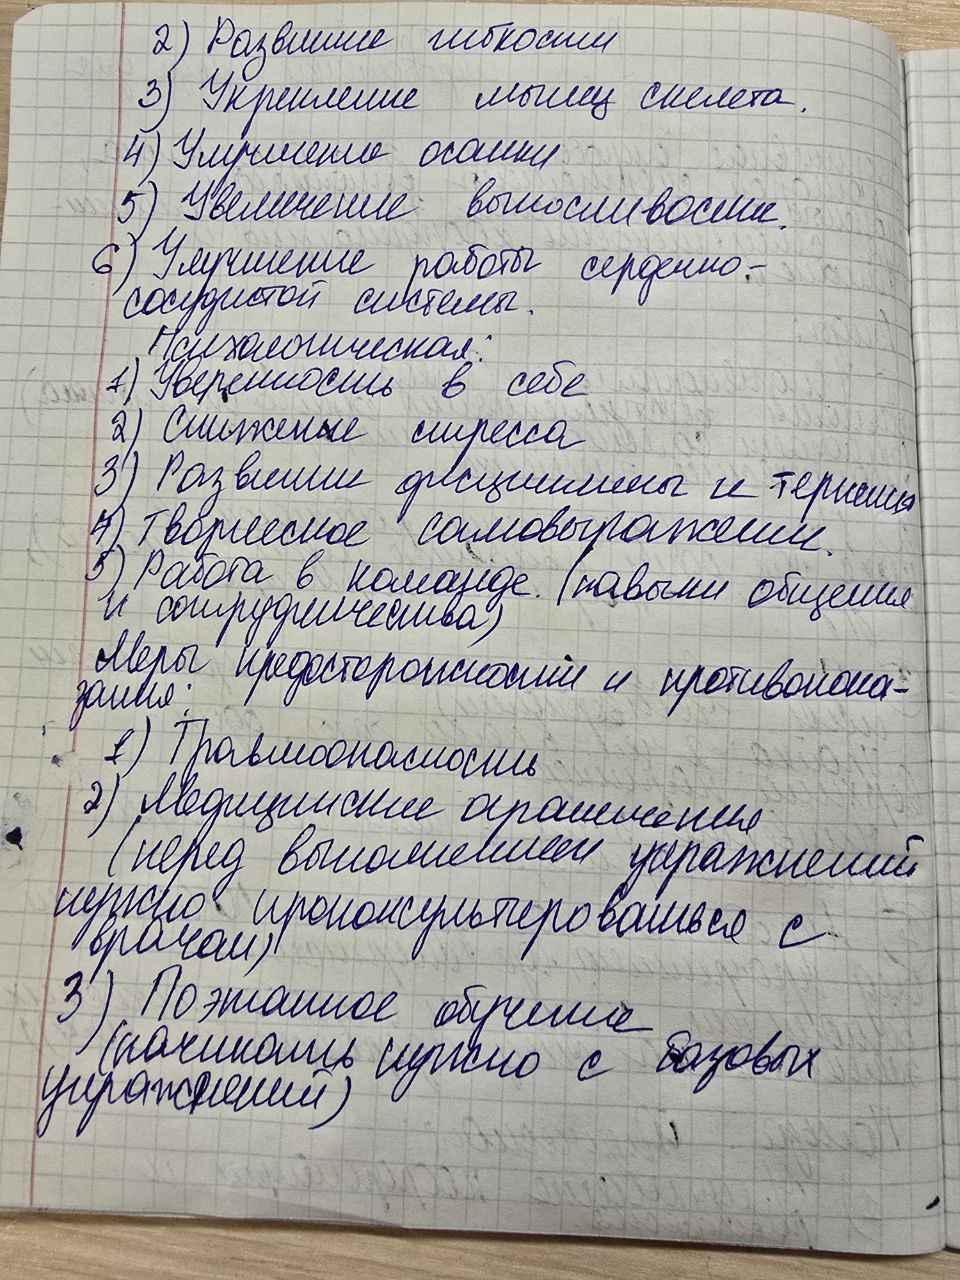 2) Развитие гибкости
3) Укрепление мышц скелета.
4) Улучшение осанки
5) Увеличение выносливости.
6) Улучшение работы сердечно-
сосудистой системы.
Психологическая:
1) Уверенность в себе
2) Снижение стресса
3) Развитие дисциплины и терпения
4) Творческое самовыражение.
5) Работа в команде. (навыки общения
и сотрудничества)
Меры предосторожности и противопока-
зания:
1) Травмоопасность
2) Медицинские ограничения
(перед выполнением упражнений
нужно проконсультироваться с
врачом)
3) Поэтапное обучение
(начинать нужно с базовых
упражнений)